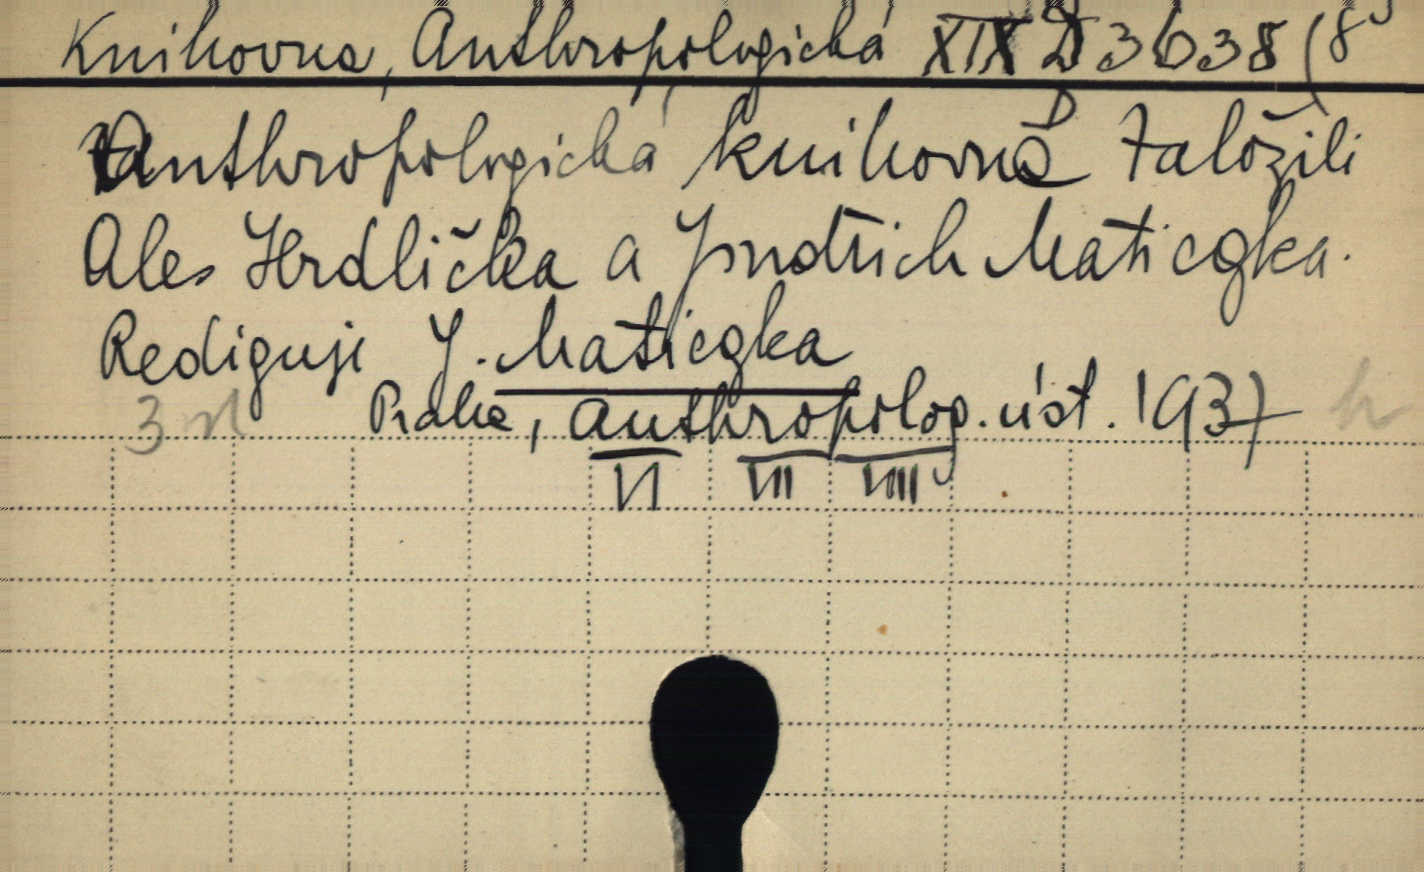 Knihovna, Anthropologická XIX D 3638 (8°
Anthropologická knihovna D založili
Ales Hrdlička a Jindřich Maticgka.
Rediguje J. Maticgka
3 st Praha, anthropolog. úst. 1937 h
VI VII VIII